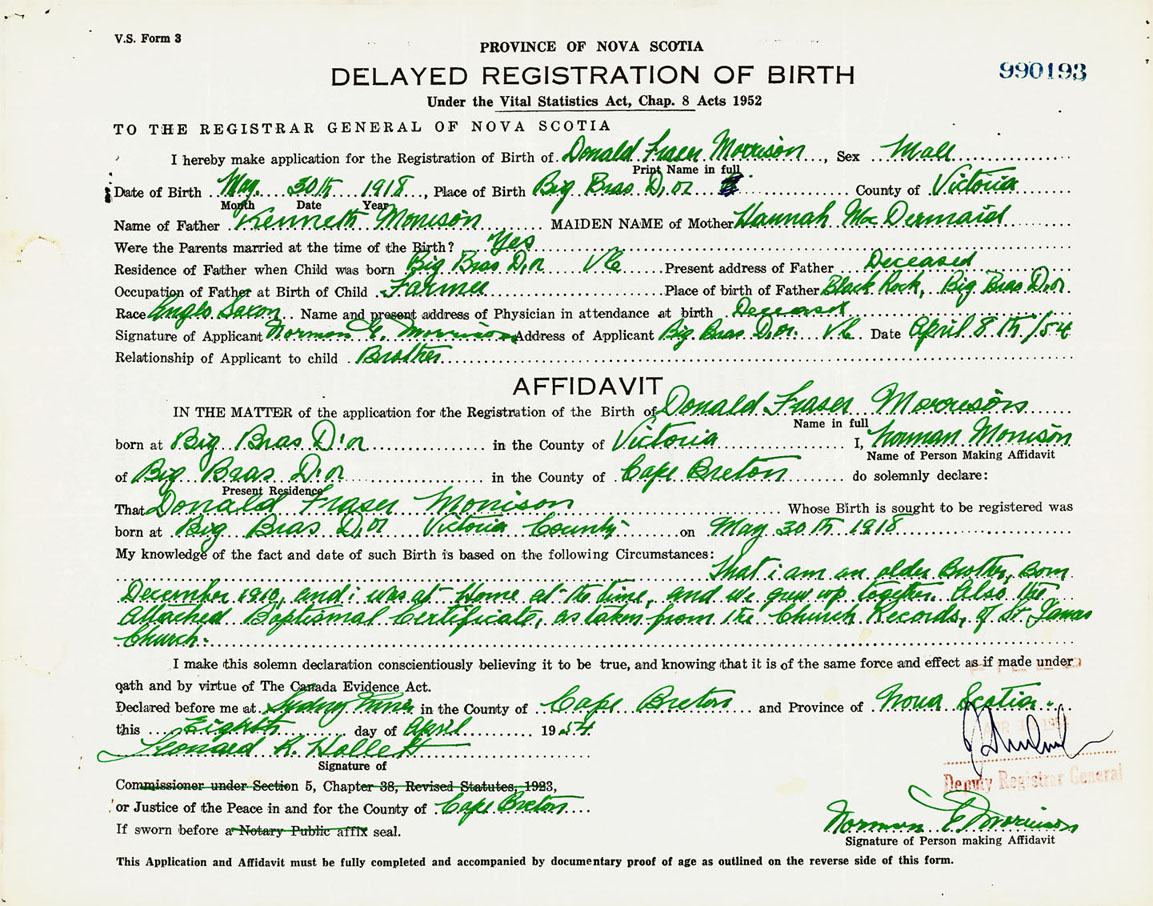 V.S. Form 3
PROVINCE OF NOVA SCOTIA
DELAYED REGISTRATION OF BIRTH
990193
Under the Vital Statistics Act, Chap. 8 Acts 1952
TO THE REGISTRAR GENERAL OF NOVA SCOTIA
I hereby make application for the Registration of Birth of Donald Fraser Morrison, Sex Male
Print Name in full
Date of Birth May 30th 1918, Place of Birth Big Bras D'or County of Victoria
Month Date Year
Name of Father Kenneth Morrison MAIDEN NAME of Mother Hannah Mac Dermaid
Were the Parents married at the time of the Birth? Yes
Residence of Father when Child was born Big Bras D'or V Co Present address of Father Deceased
Occupation of Father at Birth of Child Farmer Place of birth of Father Black Rock, Big Bras D'or
Race Anglo Saxon Name and present address of Physician in attendance at birth Deceased
Signature of Applicant Norman E. Morrison Address of Applicant Big Bras D'or. V Co Date April 8th/54
Relationship of Applicant to child Brother
AFFIDAVIT
IN THE MATTER of the application for the Registration of the Birth of Donald Fraser Morrison
Name in full
born at Big Bras D'or in the County of Victoria I, Norman Morrison
Name of Person Making Affidavit
of Big Bras D'or in the County of Cape Breton do solemnly declare:
Present Residence
That Donald Fraser Morrison Whose Birth is sought to be registered was
born at Big Bras D'or Victoria County on May 30th 1918
My knowledge of the fact and date of such Birth is based on the following Circumstances:
That i am an older Brother, Born
December 1910, and i was at Home at the time, and we grew up together. Also the
Attached Baptismal Certificate, as taken from the Church Records, of St. James
Church.
I make this solemn declaration conscientiously believing it to be true, and knowing that it is of the same force and effect as if made under
oath and by virtue of The Canada Evidence Act.
Declared before me at Sydney Mines in the County of Cape Breton and Province of Nova Scotia
this Eighth day of April 1954
Leonard R. Hollett
Signature of
Deputy Registrar General
Commissioner under Section 5, Chapter 38, Revised Statutes, 1923,
or Justice of the Peace in and for the County of Cape Breton
Norman E Morrison
If sworn before a Notary Public affix seal.
Signature of Person making Affidavit
This Application and Affidavit must be fully completed and accompanied by documentary proof of age as outlined on the reverse side of this form.